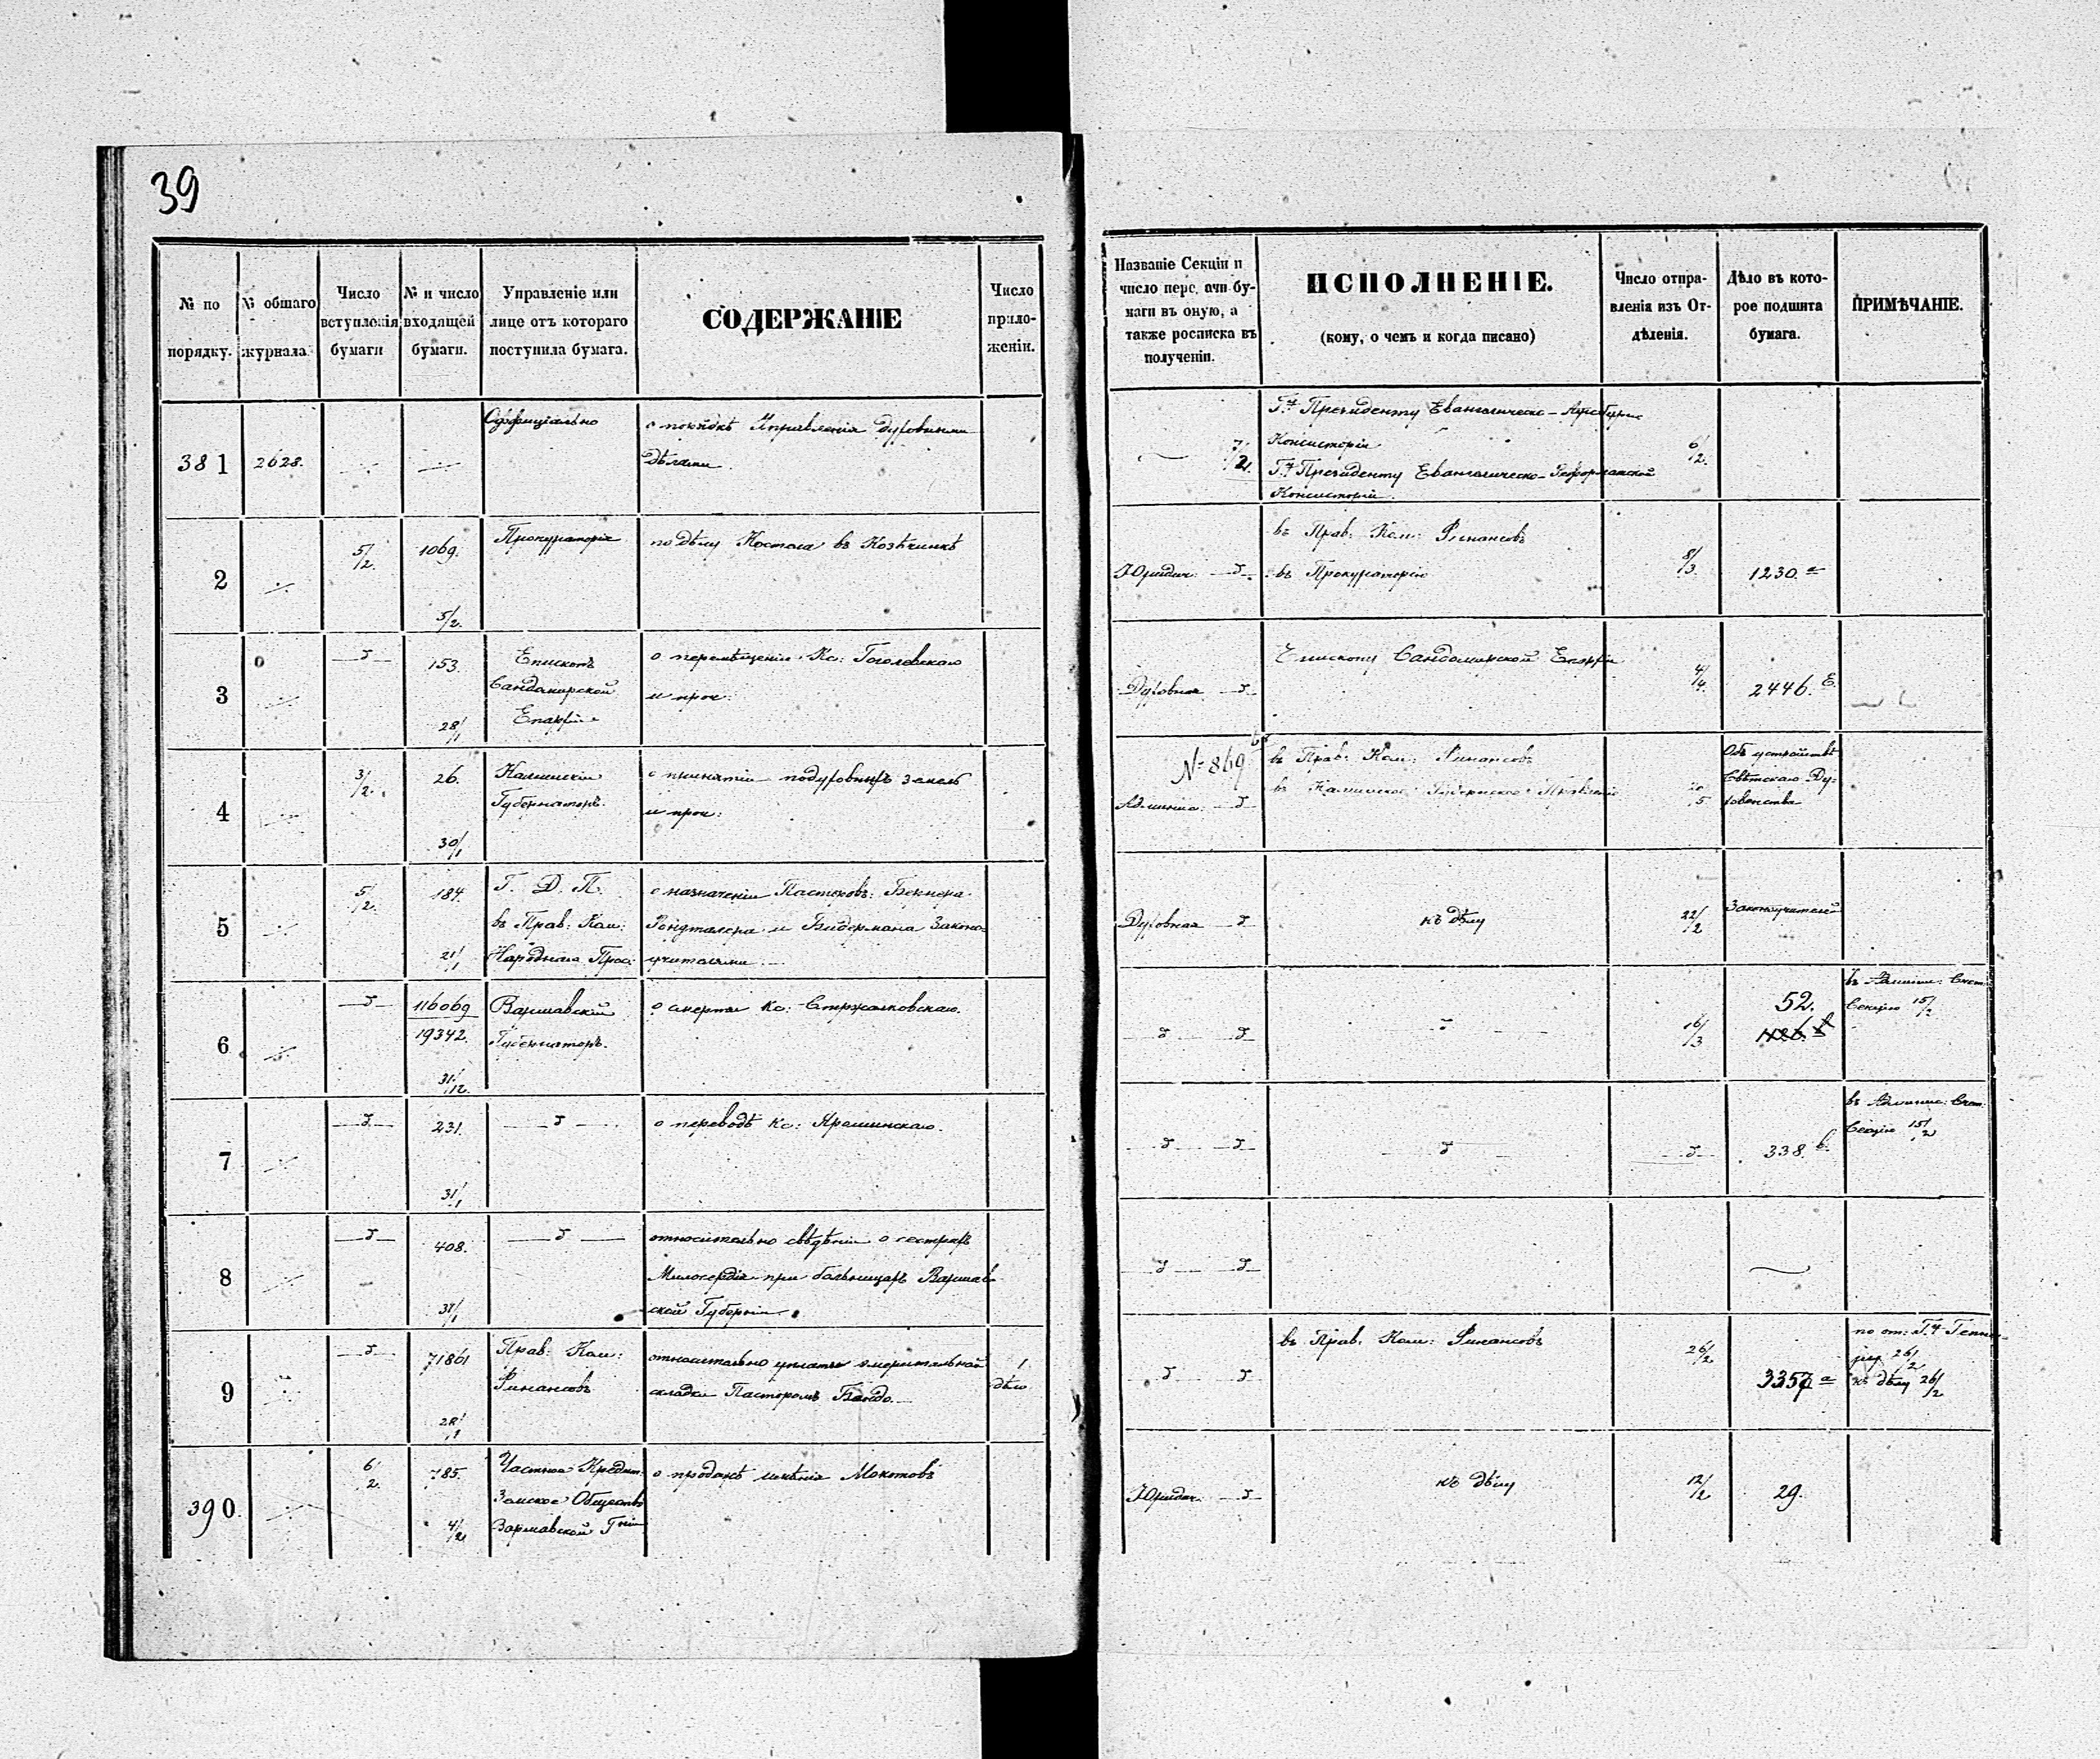 39
№ по порядку.
№ общаго журнала.
Число вступленія бумаги
№ и число входящей бумаги.
Управленіе или лице отъ котораго поступила бумага.
СОДЕРЖАНІЕ
Число приложеніи.
Названіе Секціи и
число пере. ачи бу-
маги въ оную, а
также росписка въ
полученіи.
ИСПОЛНЕНІЕ.
(кому, о чемъ и когда писано)
Число отпра-
вленія изъ От-
дѣленія.
Дѣло въ кото-
рое подшита
бумага.
ПРИМѢЧАНІЕ.
381
2628.
Оффиціально
Управленія Духовными
Дѣлами.
7/2.
Гну Президенту Евангелическо-
Консисторіи
Гну Президенту Евангелическо-Реформатской
Консисторіи.
6/2.
2
5/2.
1069.
5/2.
Прокураторія
по дѣлу Костела въ
Юридич.
въ Прав: Ком: Финансовъ
въ Прокураторію
8/3.
1230. а
3
153.
28/1
Епископъ
Сандомирской
Епархіи
о перемѣщеніи Кс: Гоголевскаго
и проч:
Духовная
Епископу Сандомирской Епархіи
4/4.
2446. Е.
4
3/2.
26.
30/1
Калишскій
Губернаторъ.
о принятіи подуховныхъ земель
и проч:
№ 869
въ Прав: Ком: Финансовъ
въ Калишское Губернское Правленіе
20/5
Объ устройствѣ
Свѣтскаго Ду-
ховенства
5
5/2.
184.
21/1
Г. Д. П.
въ Прав: Ком:
Народнаго Прос:
о назначеніи Пасторовъ: Бекнера
и Бидермана Законо-
учителями.
Духовная
къ дѣлу
22/2
Законоучителей
6
116069
19342.
31/12.
Варшавскій
Губернаторъ.
о смерти Кс: Стржалковскаго.
16/3
52.
въ Админис: Счет:
Секцію 15/2
7
231.
31/1
о переводѣ Кс:
338. б.
въ Админис: Счет:
Секцію 15/2
8
408.
31/1
относительно свѣдѣній о сестрахъ
Милосердія при больницахъ Варшав-
ской Губерніи.
9
71861
28/1
Прав: Ком:
Финансовъ
относительно уплаты эмеритальной
складки Пасторомъ Бандо.
1
дѣло
въ Прав. Ком: Финансовъ
26/2
3357 а
26/2
къ дѣлу 26/2
390.
6/2.
785.
4/2
Частное Кредит:
Земское Общество
Варшавской Гніи
о продажѣ имѣнія Мокотовъ
Юридич.
къ дѣлу
12/2
29.